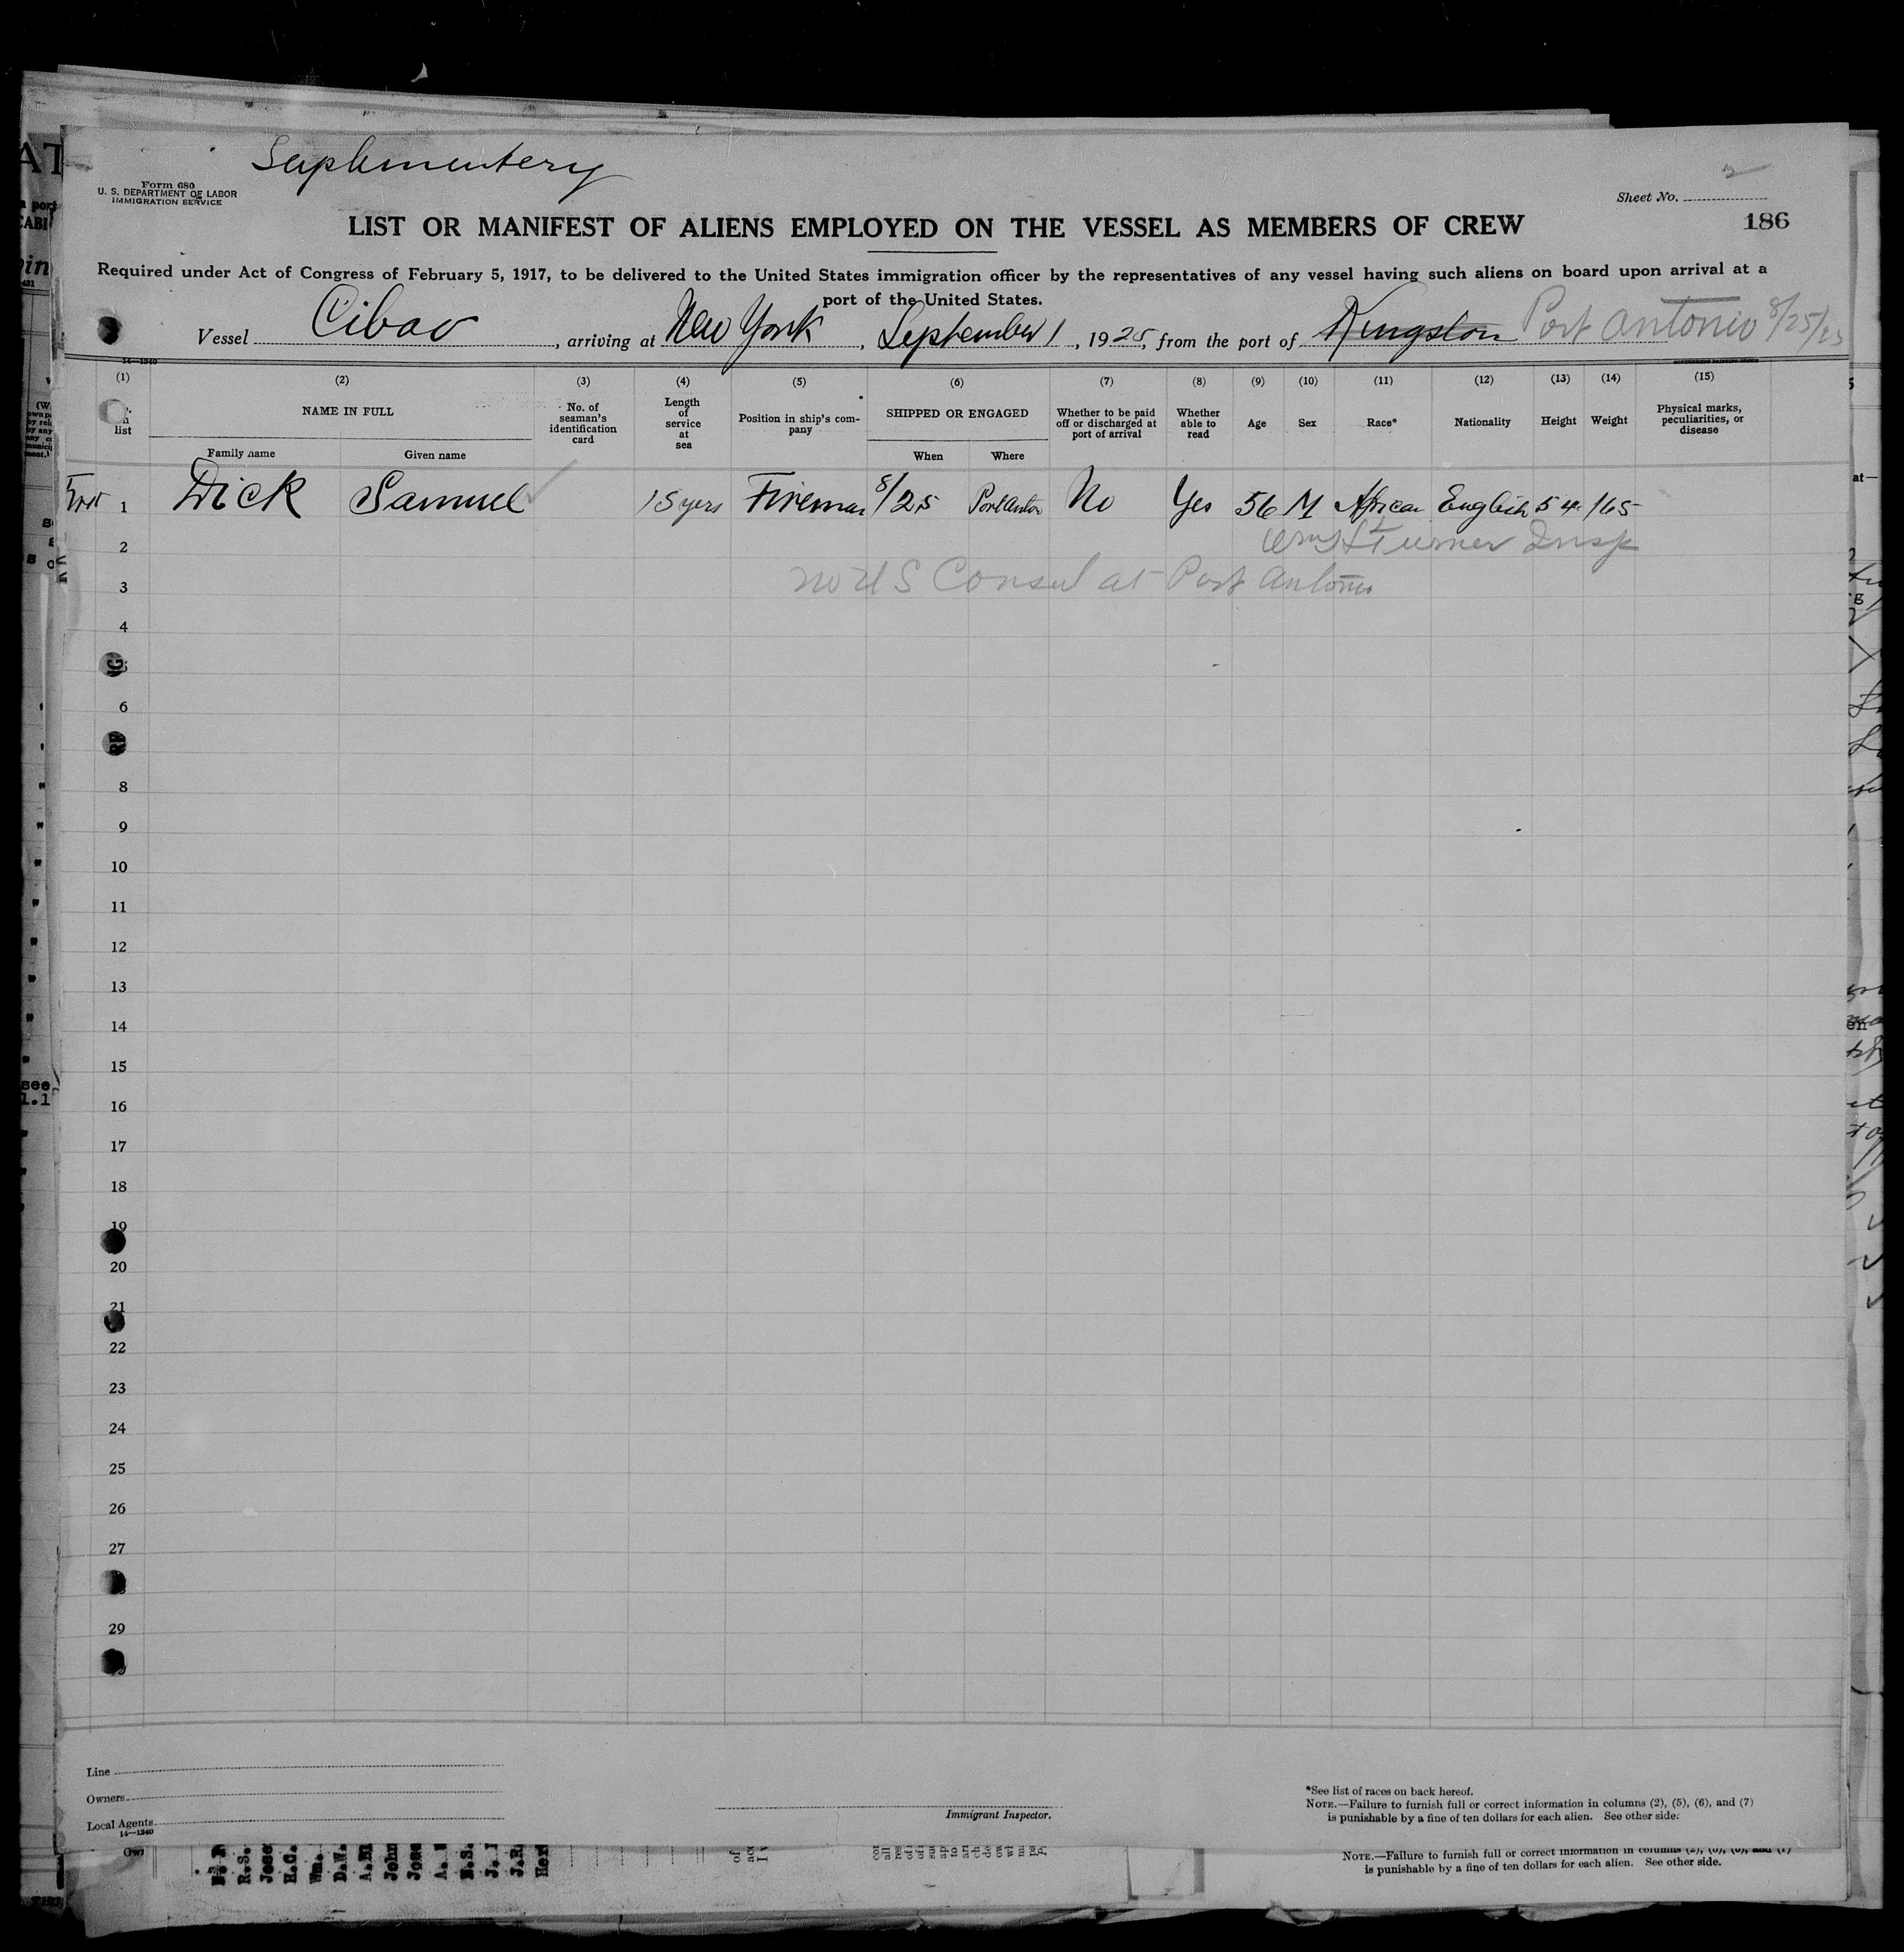 Suplimentery
Form 680
U. S. DEPARTMENT OF LABOR
IMMIGRATION SERVICE
Sheet No. 2
186
LIST OR MANIFEST OF ALIENS EMPLOYED ON THE VESSEL AS MEMBERS OF CREW
Required under Act of Congress of February 5, 1917, to be delivered to the United States immigration officer by the representatives of any vessel having such aliens on board upon arrival at a
port of the United States.
Vessel Cibao, arriving at New York, September 1, 1925, from the port of Kingston Port Antonio 8/25/25
14—1240
(1) (2) (3) (4) (5) (6) (7) (8) (9) (10) (11) (12) (13) (14) (15)
list
NAME IN FULL
Family name Given name
No. of
seaman's
identification
card
Length
of
service
at
sea
Position in ship's com-
pany
SHIPPED OR ENGAGED
When Where
Whether to be paid
off or discharged at
port of arrival
Whether
able to
read
Age
Sex
Race*
Nationality
Height
Weight
Physical marks,
peculiarities, or
disease
1 Dick Samuel 15 yers Fireman 8/25 Port Anton No Yes 56 M African English 5 4 165
2 Wm H Turner Insp
3 No U S Consul at Port Antonio
4
6
8
9
10
11
12
13
14
15
16
17
18
19
20
21
22
23
24
25
26
27
29
Line
Owners
Local Agents
14—1240
Immigrant Inspector.
*See list of races on back hereof.
NOTE.—Failure to furnish full or correct information in columns (2), (5), (6), and (7)
is punishable by a fine of ten dollars for each alien. See other side.
NOTE.—Failure to furnish full or correct information in columns (2), (5), (6), and (7)
is punishable by a fine of ten dollars for each alien. See other side.